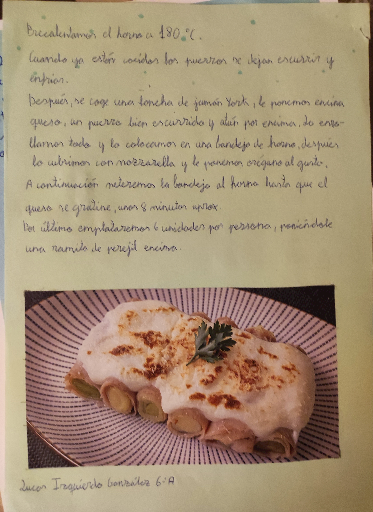 Precalentamos el horno a 180 ºC.
Cuando ya estén cocidos los puerros se dejan escurrir y
enfriar.
Después, se coge una loncha de jamón York, le ponemos encima
queso, un puerro bien escurrido y atún por encima. Lo enro-
llamos todo y lo colocamos en una bandeja de horno, después
lo cubrimos con mozzarella y le ponemos orégano al gusto.
A continuación meteremos la bandeja al horno hasta que el
queso se gratine, unos 8 minutos aprox.
Por último emplataremos 6 unidades por persona, poniéndole
una ramita de perejil encima.
Lucas Izquierdo González 6ºA